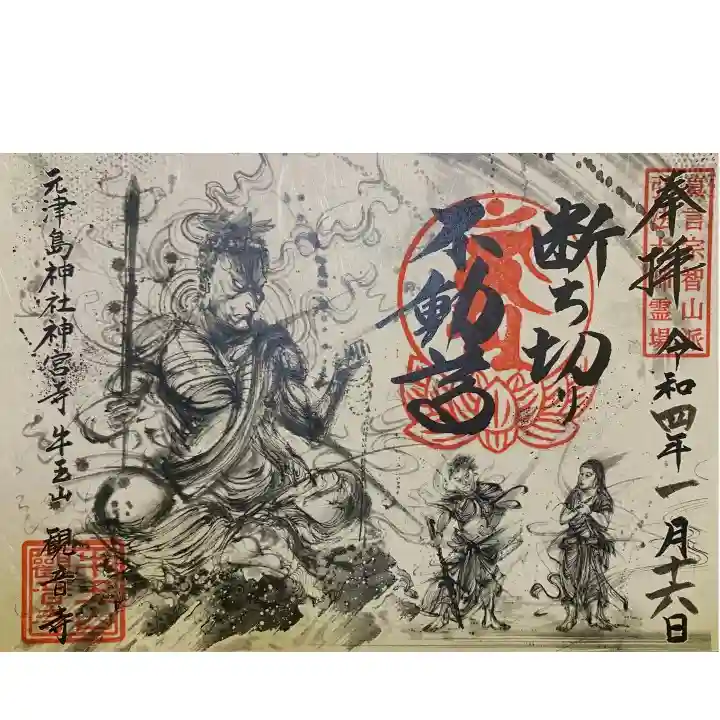 奉拝 令和四年一月十六日
真言宗智山派
霊場
断ち切り
不動尊
元津島神社神宮寺 牛玉山 観音寺